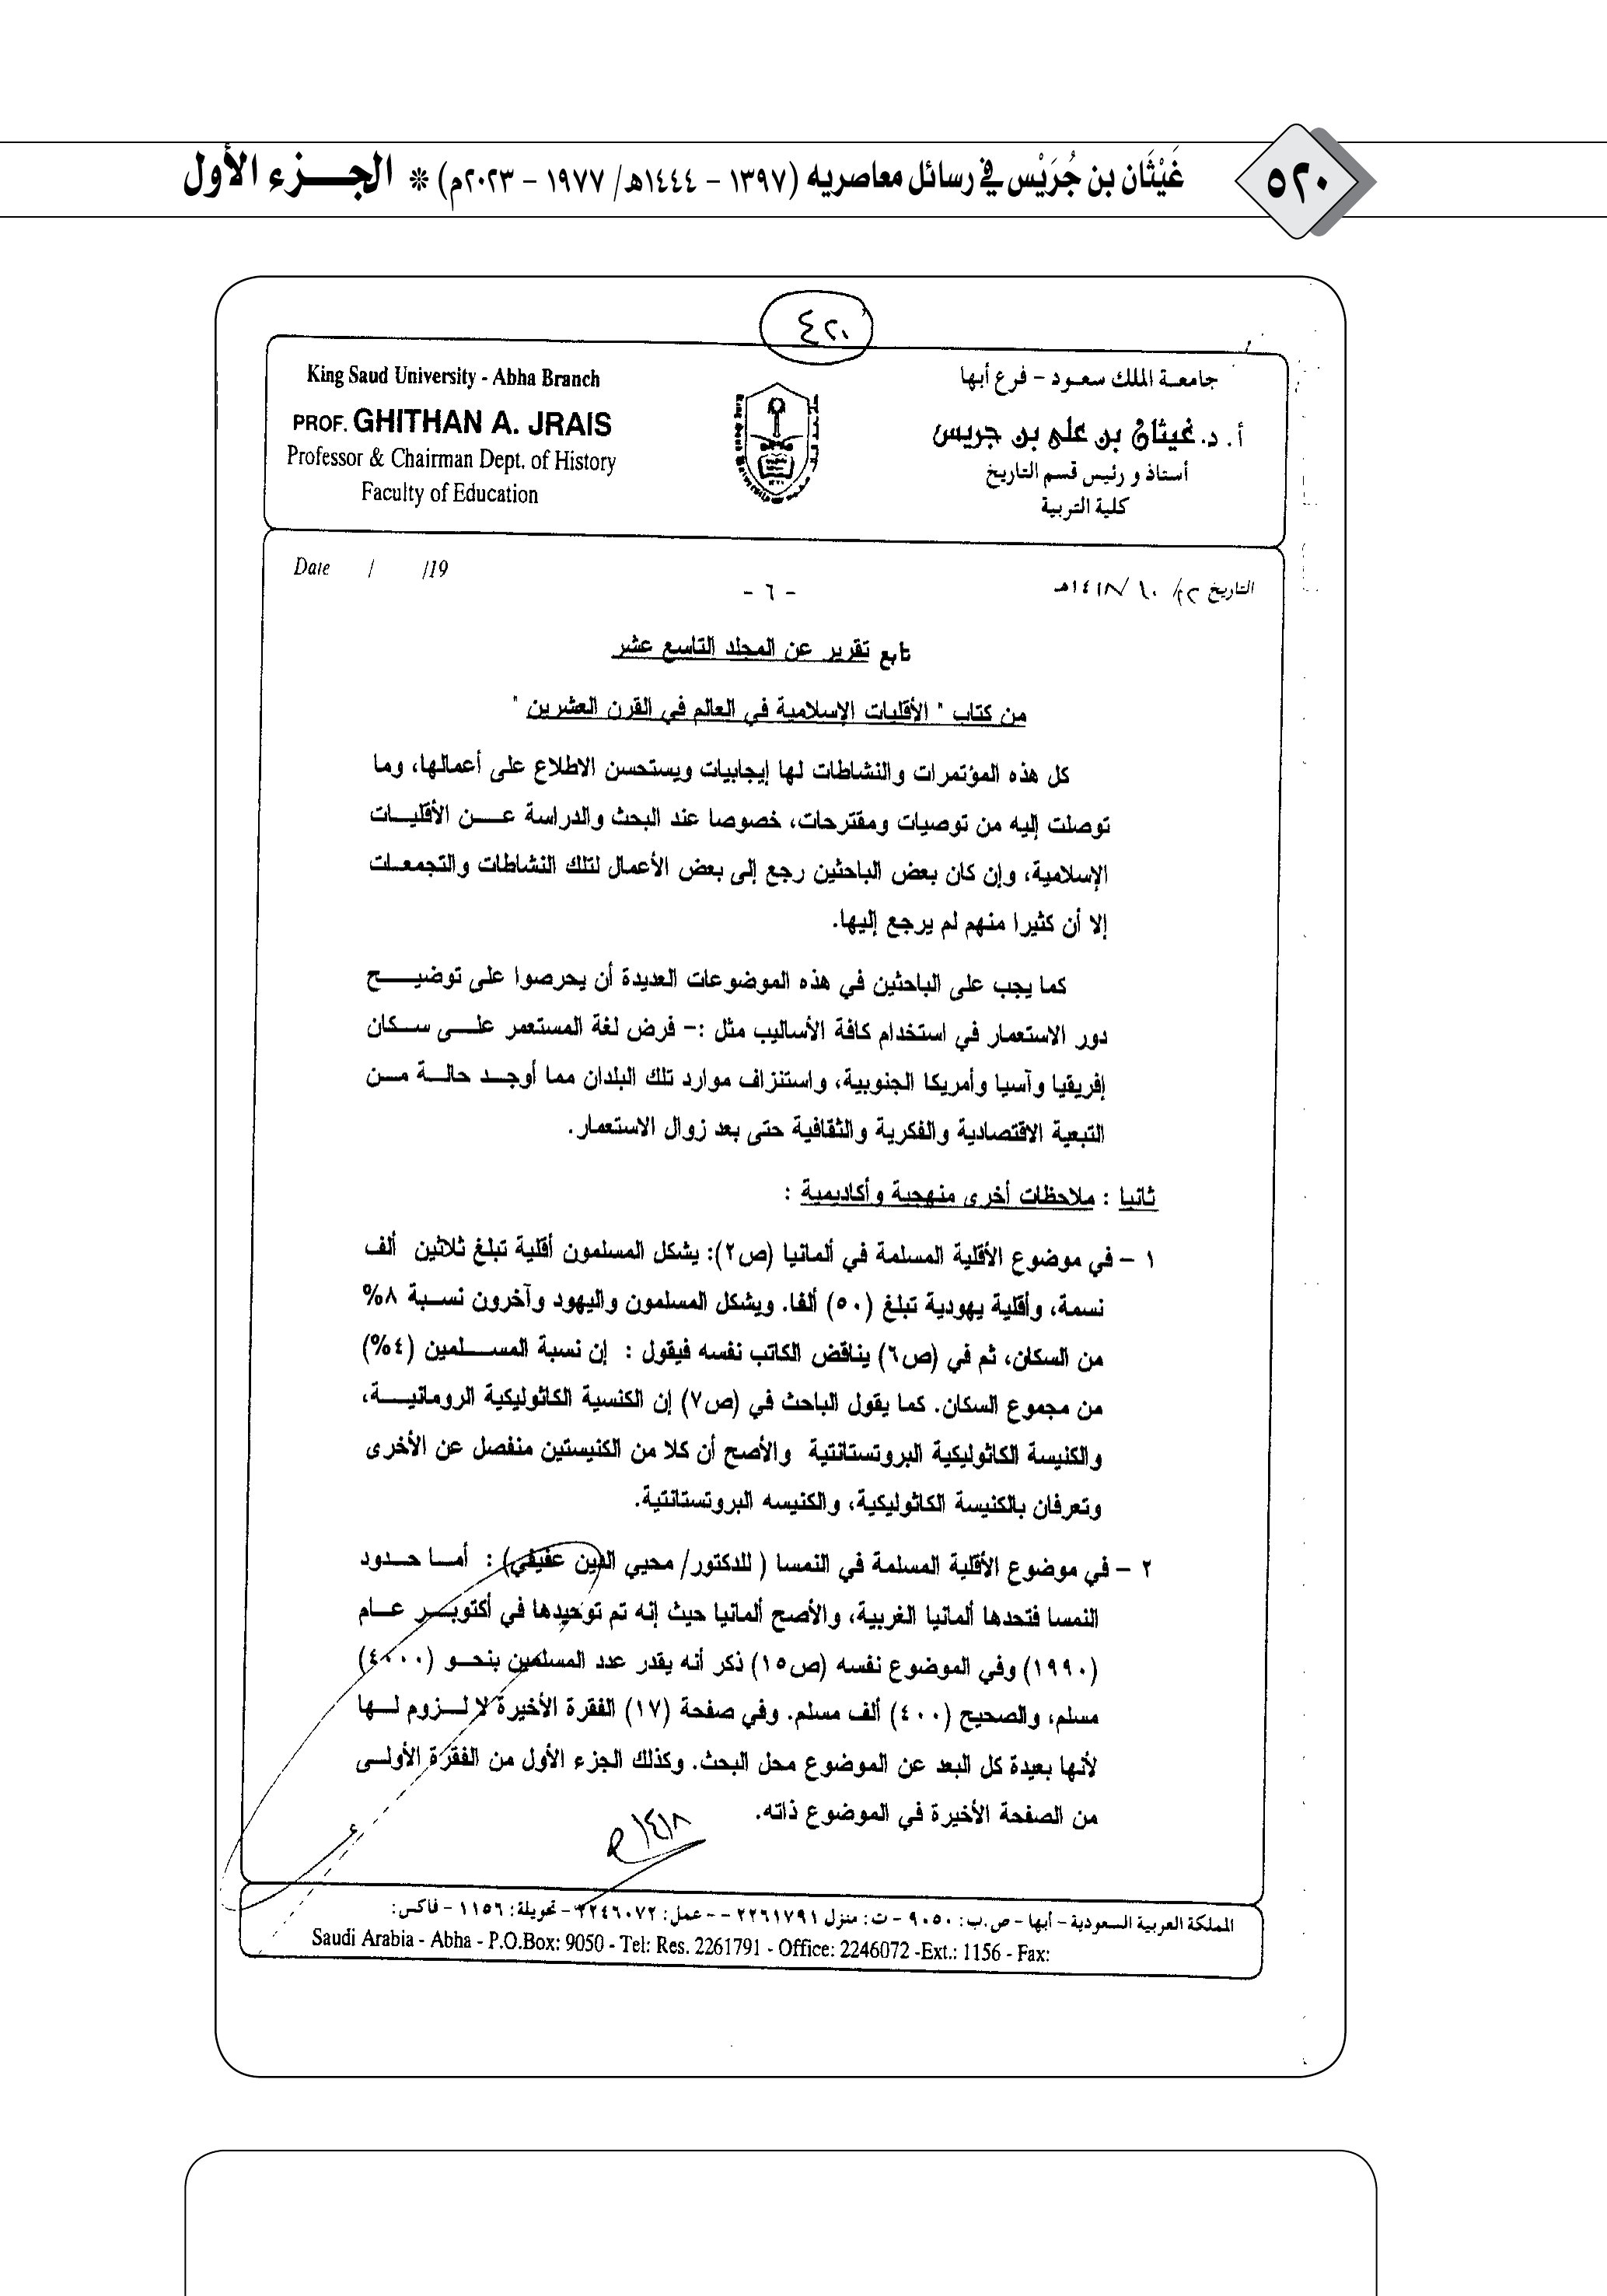 ٥٢٠
غَيْثَان بن جُرَيْس في رسائل معاصريه (١٣٩٧ - ١٤٤٤هـ/ ١٩٧٧ - ٢٠٢٣م) * الجـزء الأول
٤٢٠
جامعـة الملك سعـود - فرع أبها
أ. د. غيثان بن على بن جريس
أستاذ و رئيس قسم التاريخ
كلية التربية
King Saud University - Abha Branch
PROF. GHITHAN A. JRAIS
Professor & Chairman Dept. of History
Faculty of Education
التاريخ ٢٢/ ١٠/ ١٤١٨هـ
- ٦ -
Date / /19
تابع تقرير عن المجلد التاسع عشر
من كتاب " الأقليات الإسلامية في العالم في القرن العشرين "
كل هذه المؤتمرات والنشاطات لها إيجابيات ويستحسن الاطلاع على أعمالها، وما
توصلت إليه من توصيات ومقترحات، خصوصا عند البحث والدراسة عـن الأقليـات
الإسلامية، وإن كان بعض الباحثين رجع إلى بعض الأعمال لتلك النشاطات والتجمعـات
إلا أن كثيرا منهم لم يرجع إليها.
كما يجب على الباحثين في هذه الموضوعات العديدة أن يحرصوا على توضيـح
دور الاستعمار في استخدام كافة الأساليب مثل :- فرض لغة المستعمر علـى سـكان
إفريقيا وآسيا وأمريكا الجنوبية، واستنزاف موارد تلك البلدان مما أوجـد حالـة مـن
التبعية الاقتصادية والفكرية والثقافية حتى بعد زوال الاستعمار.
ثانيا : ملاحظات أخرى منهجية وأكاديمية :
١ - في موضوع الأقلية المسلمة في ألمانيا (ص٢): يشكل المسلمون أقلية تبلغ ثلاثين ألف
نسمة، وأقلية يهودية تبلغ (٥٠) ألفا. ويشكل المسلمون واليهود وآخرون نسـبة ٨%
من السكان، ثم في (ص٦) يناقض الكاتب نفسه فيقول : إن نسبة المسـلمين (٤%)
من مجموع السكان. كما يقول الباحث في (ص٧) إن الكنسية الكاثوليكية الرومانيـة،
والكنيسة الكاثوليكية البروتستانتية والأصح أن كلا من الكنيستين منفصل عن الأخرى
وتعرفان بالكنيسة الكاثوليكية، والكنيسه البروتستانتية.
٢ - في موضوع الأقلية المسلمة في النمسا ( للدكتور/ محيي الدين عفيفي) : أمـا حـدود
النمسا فتحدها ألمانيا الغربية، والأصح ألمانيا حيث إنه تم توحيدها في أكتوبـر عـام
(١٩٩٠) وفي الموضوع نفسه (ص١٥) ذكر أنه يقدر عدد المسلمين بنحـو (٤٠٠٠)
مسلم، والصحيح (٤٠٠) ألف مسلم. وفي صفحة (١٧) الفقرة الأخيرة لا لـزوم لـها
لأنها بعيدة كل البعد عن الموضوع محل البحث. وكذلك الجزء الأول من الفقرة الأولـى
من الصفحة الأخيرة في الموضوع ذاته.
١٤١٨هـ
المملكة العربية السعودية - أبها - ص.ب: ٩٠٥٠ - ت: منزل ٢٢٦١٧٩١ - - عمل: ٢٢٤٦٠٧٢ - تحويلة: ١١٥٦ - فاكس:
Saudi Arabia - Abha - P.O.Box: 9050 - Tel: Res. 2261791 - Office: 2246072 -Ext.: 1156 - Fax: